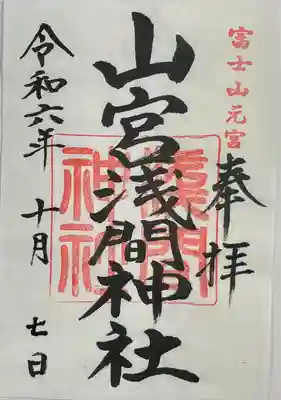 富士山元宮
奉拝
山宮浅間神社
浅間
神社
令和六年 十月 七日